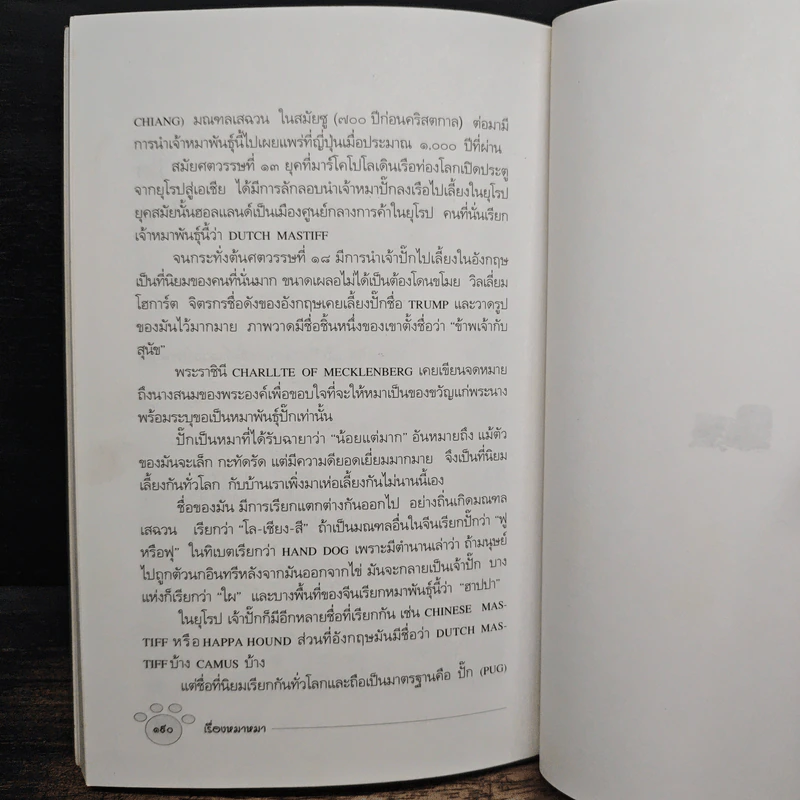 CHIANG) มณฑลเสฉวน ในสมัยซู (๗๐๐ ปีก่อนคริสตกาล) ต่อมามี
การนำเจ้าหมาพันธุ์นี้ไปเผยแพร่ที่ญี่ปุ่นเมื่อประมาณ ๑,๐๐๐ ปีที่ผ่าน
สมัยศตวรรษที่ ๑๓ ยุคที่มาร์โคโปโลเดินเรือท่องโลกเปิดประตู
จากยุโรปสู่เอเชีย ได้มีการลักลอบนำเจ้าหมาปั๊กลงเรือไปเลี้ยงในยุโรป
ยุคสมัยนั้นฮอลแลนด์เป็นเมืองศูนย์กลางการค้าในยุโรป คนที่นั่นเรียก
เจ้าหมาพันธุ์นี้ว่า DUTCH MASTIFF
จนกระทั่งต้นศตวรรษที่ ๑๘ มีการนำเจ้าปั๊กไปเลี้ยงในอังกฤษ
เป็นที่นิยมของคนที่นั่นมาก ขนาดเผลอไม่ได้เป็นต้องโดนขโมย วิลเลี่ยม
โฮการ์ต จิตรกรชื่อดังของอังกฤษเคยเลี้ยงปั๊กชื่อ TRUMP และวาดรูป
ของมันไว้มากมาย ภาพวาดมีชื่อชิ้นหนึ่งของเขาตั้งชื่อว่า "ข้าพเจ้ากับ
สุนัข"
พระราชินี CHARLLTE OF MECKLENBERG เคยเขียนจดหมาย
ถึงนางสนมของพระองค์เพื่อขอบใจที่จะให้หมาเป็นของขวัญแก่พระนาง
พร้อมระบุขอเป็นหมาพันธุ์ปั๊กเท่านั้น
ปั๊กเป็นหมาที่ได้รับฉายาว่า "น้อยแต่มาก" อันหมายถึง แม้ตัว
ของมันจะเล็ก กะทัดรัด แต่มีความดียอดเยี่ยมมากมาย จึงเป็นที่นิยม
เลี้ยงกันทั่วโลก กับบ้านเราเพิ่งมาเห่อเลี้ยงกันไม่นานนี้เอง
ชื่อของมัน มีการเรียกแตกต่างกันออกไป อย่างถิ่นเกิดมณฑล
เสฉวน เรียกว่า "โล-เชียง-สี" ถ้าเป็นมณฑลอื่นในจีนเรียกปั๊กว่า "ฟู
หรือฟุ" ในทิเบตเรียกว่า HAND DOG เพราะมีตำนานเล่าว่า ถ้ามนุษย์
ไปถูกตัวนกอินทรีหลังจากมันออกจากไข่ มันจะกลายเป็นเจ้าปั๊ก บาง
แห่งก็เรียกว่า "ไผ" และบางพื้นที่ของจีนเรียกหมาพันธุ์นี้ว่า "ฮาปปา"
ในยุโรป เจ้าปั๊กก็มีอีกหลายชื่อที่เรียกกัน เช่น CHINESE MAS-
TIFF หรือ HAPPA HOUND ส่วนที่อังกฤษมันมีชื่อว่า DUTCH MAS-
TIFF บ้าง CAMUS บ้าง
แต่ชื่อที่นิยมเรียกกันทั่วโลกและถือเป็นมาตรฐานคือ ปั๊ก (PUG)
๑๙๐ เรื่องหมาหมา